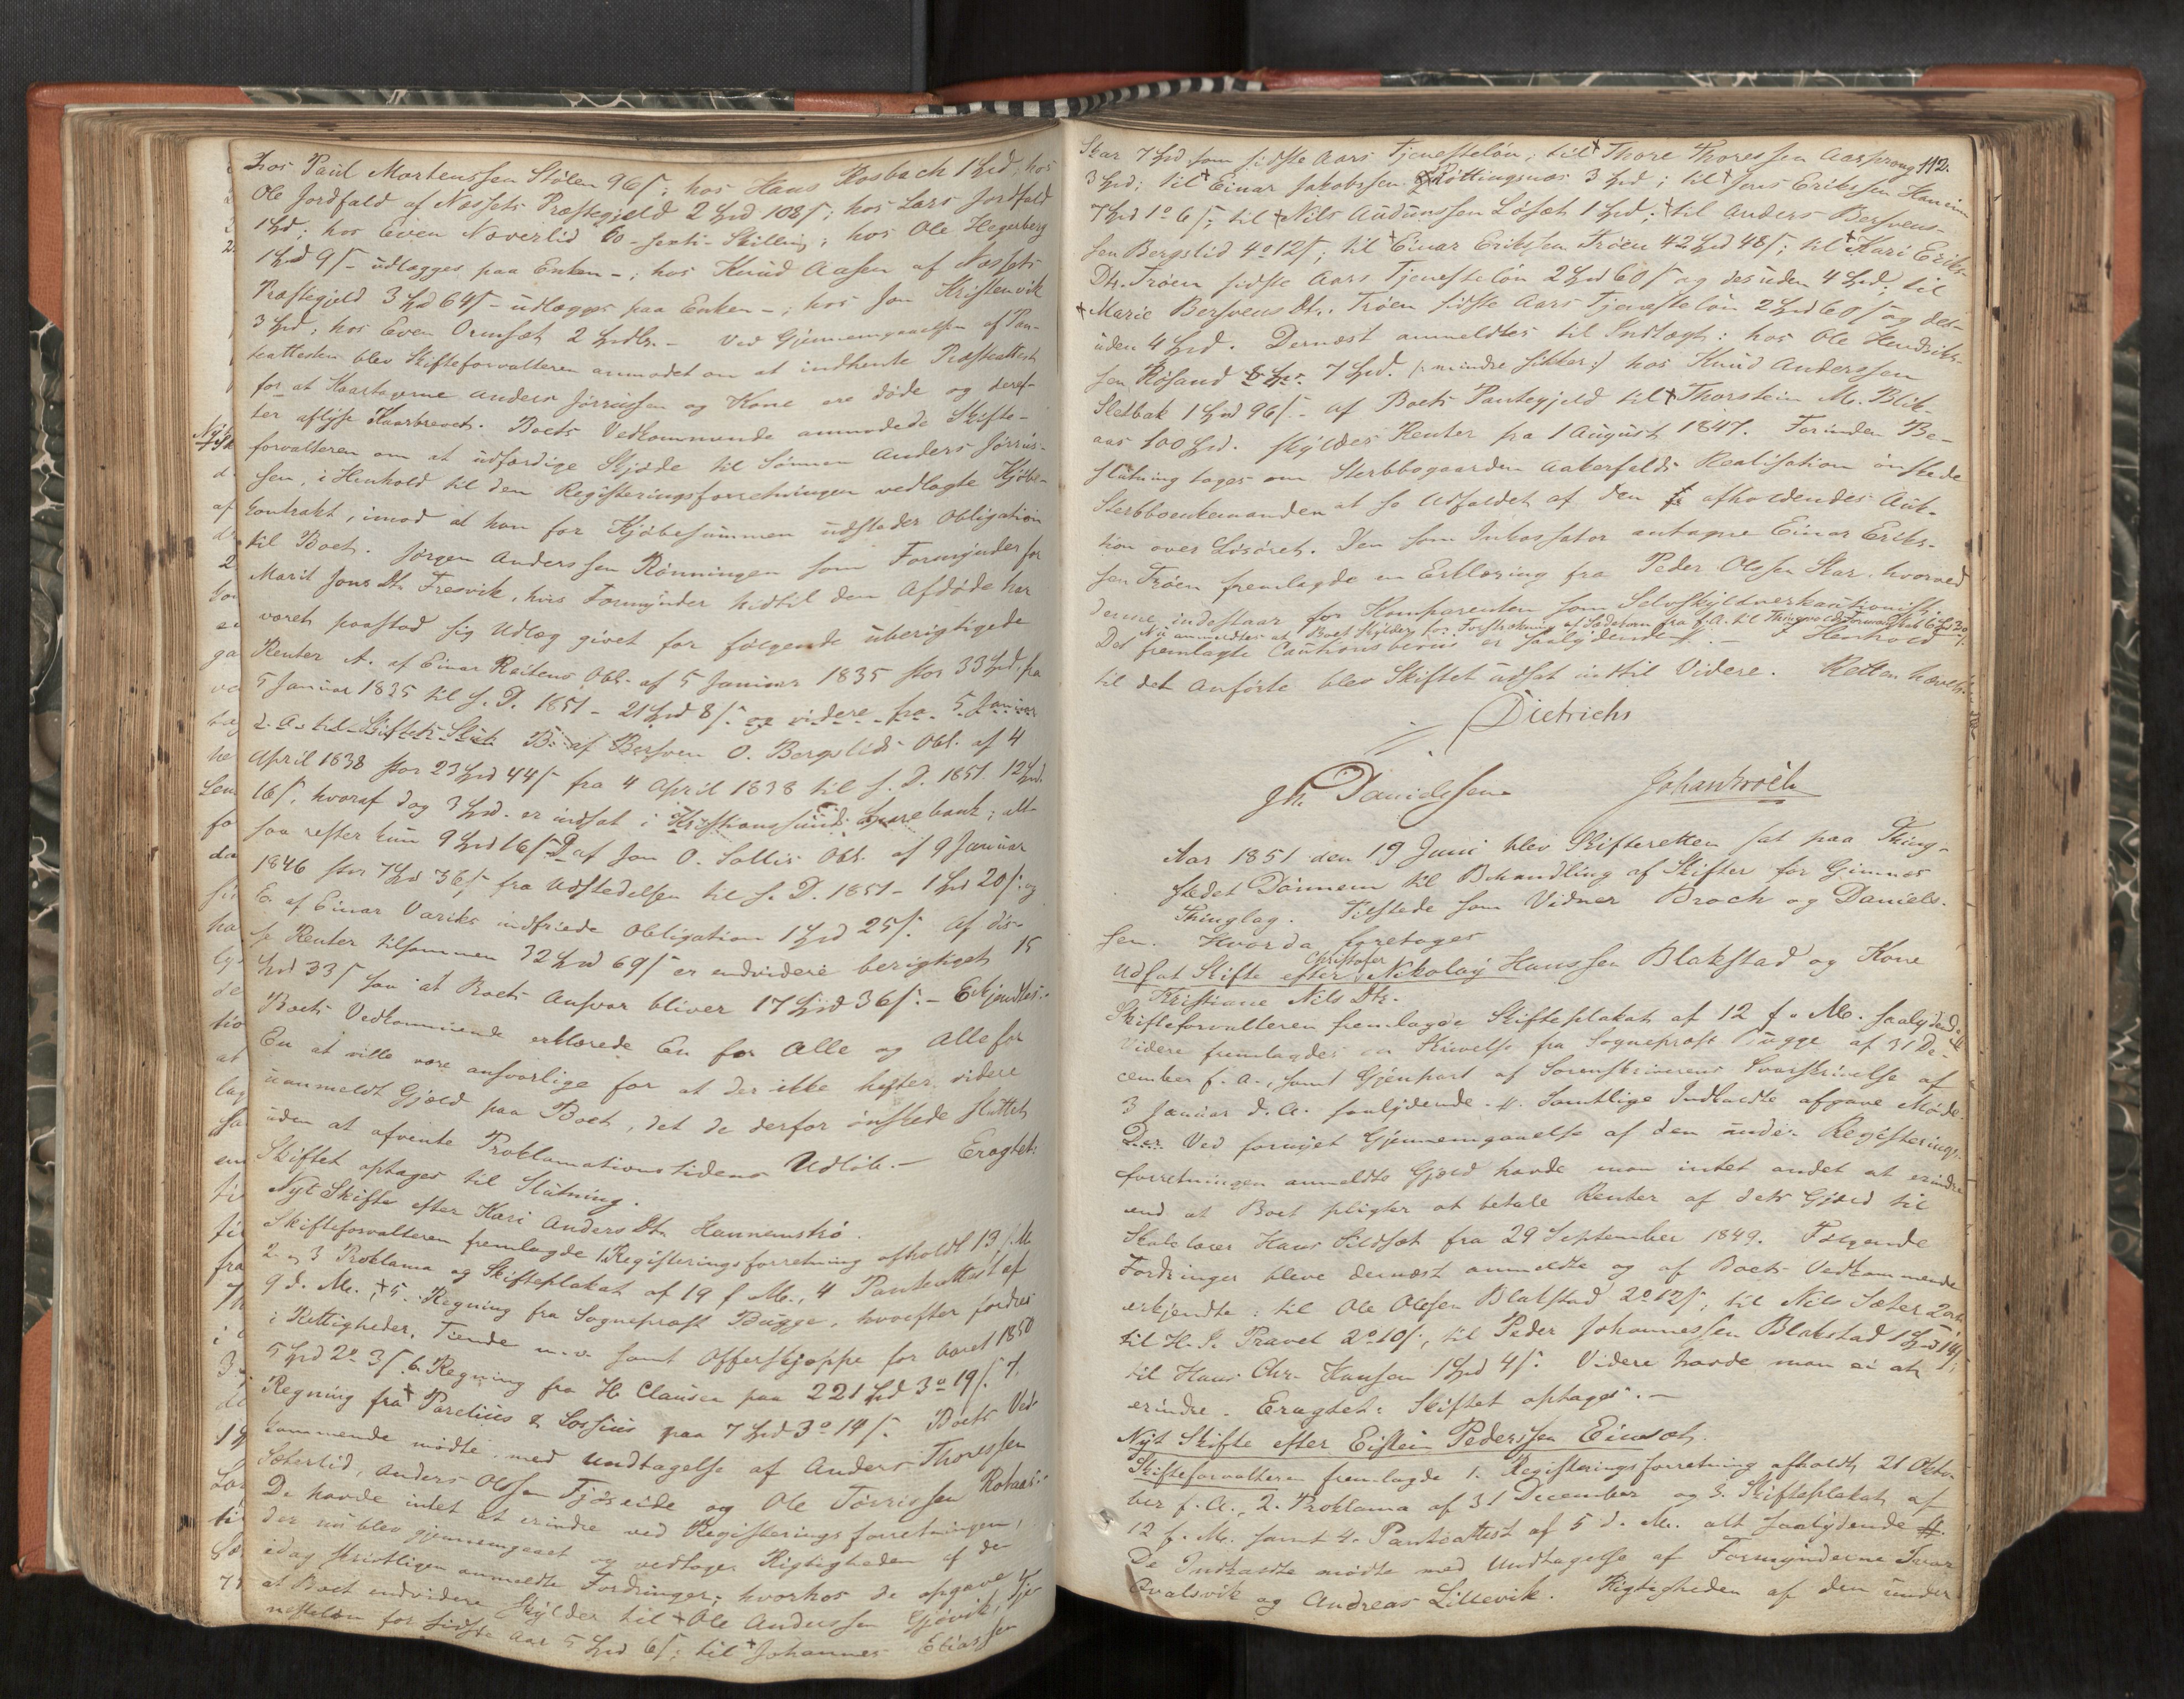 hos Paul Mortenssen Stölen 96 s; hos Hans Rosbach 1 Spd; hos
Ole Jordfald af Næssets Præstegjeld 2 Spd 108 s; hos Lars Jordfald
1 Spd; hos Even Noverlid 60 - sexti - Skilling; hos Ole Hegerberg
1 Spd 9 s - udlægges paa Enken -; hos Knud Aasen af Næssets
Præstegjeld 3 Spd 64 s - udlægges paa Enken -; hos Jon Kristenvik
3 Spd; hos Even Ormsæt 2 Spdlr. - Ved Gjennemgaaelsen af Pan-
teattesten blev Skifteforvalteren anmodet om at indhente Præsteattest
for at Kaartagerne Anders Jörrüssen og Kone ere döde og deref-
ter aflyse Kaarbrevet. Boets Vedkommende anmodede Skifte-
forvalteren om at udfærdige Skjöde til Sönnen Anders Jörrüs-
sen, i Henhold til den Registreringsforretningen vedlagte Kjöbe-
kontrakt, imod at han for Kjöbesummen udsteder Obligation
til Boet. Jörgen Anderssen Rönningen som Formynder for
Marit Jons Dtr. Fresvik, hvis Formynder hidtil den Afdöde har
været paastod sig Udlæg givet for fölgende uberigtigede
Renter A. af Einar Reitens Obl. af 5 Januar 1835 stor 33 Spd, fra
5 Januar 1835 til s. D. 1851 - 21 Spd 8 s. og videre fra 5 Januar
d. A. til Skiftets Slut. B. af Bersven O. Bergslids Obl. af 4
April 1838 stor 23 Spd 44 s fra 4 April 1838 til s. D. 1851. 12 Spd.
16 s, hvoraf dog 3 Spd. er indsat i Kristianssunds Sparebank; alt-
saa rester kun 9 Spd 16 s. D af Jon O. Sollis Obl. af 9 Januar
1846 stor 7 Spd 36 s fra Udstedelsen til s. D. 1851 - 1 Spd 20 s; og
E. af Einar Variks indfriede Obligation 1 Spd 25 s. Af dis-
se Renter tilsammen 32 Spd 69 s er endvidere berigtiget 15
Spd 33 s saa at Boets Ansvar bliver 17 Spd 36 s. - Erkjendtes.
Boets Vedkommende erklærede En for Alle og Alle for
En at ville være ansvarlige for at der ikke hefter videre
uanmeldt Gjæld paa Boet, det de derfor önskede sluttet
uden at afvente Proklamationstidens Udlöb. - Eragtet:
Skiftet optages til Slutning.
Nyt Skifte efter Kari Anders Dtr. Hannemströ.
Skifteforvalteren fremlagde 1. Registreringsforretning afholdt 13 f. M
2 og 3 Proklama og Skifteplakat af 19 f. M., 4 Panteattest af
9 d. M., + 5. Regning fra Sogneprest Bugge, hvorefter fordres
i Rettigheder, Tiende m.v. samt Offerskjæppe for Aaret 1850
5 Spd 2 o 3 s. 6. Regning fra H. Clausen paa 221 Spd 3 o 19 s. 7.
Regning fra + Parelius & Lossius paa 7 Spd 3 o 14 s. Boets Ved-
kommende mödte, med Undtagelse af Anders Thoressen
Sæterlid, Anders Olssen Fjöseide og Ole Törrissen Rotnes.
De havde intet at erindre ved Registreringsforretningen,
der nu blev gjennemgaaet og vedtoges Rigtigheden af de
idag skriftligen anmeldte Fordringer; hvorhos de opgave
at Boet endvidere skylder til + Ole Anderssen Gjövik, Tje-
nestelön for sidste Aar 5 Spd 6 s; til + Johannes Eliassen
112.
Skar 7 Spd. som sidste Aars Tjenestelön; til + Thore Thoressen Aasprong
3 Spd; til + Einar Jakobssen Röttingsnæs 3 Spd; til + Jens Erikssen Hanem
7 Spd 1 o 6 s; til + Nils Audunssen Löset 1 Spd; + til Anders Bersvens-
sen Bergslid 4 o 12 s; til + Einar Erikssen Tröen 42 Spd 48 s; til + Kari Eriks
Dtr. Tröen sidste Aars Tjenestelön 2 Spd 60 s og desuden 4 Spd; til
+ Marie Bersvens Dtr. Tröen sidste Aars Tjenestelön 2 Spd 60 s og des-
uden 4 Spd. Dernæst anmeldtes til Indtægt: hos Ole Hendriks-
sen Rösand 7 Spd. (: mindre sikker:) hos Knud Anderssen
Sletbak 1 Spd 96 s. - af Boets Pantegjeld til + Thorstein M. Blik-
aas 100 Spd. skyldes Renter fra 1 August 1847. Forinden Be-
slutning tages om Sterbbogaarden Aakerfalds Realisation önskede
Sterbboenkemanden at se Udfaldet af den afholdendes Auk-
tion over Lösöret. Den som Inkassator antagne Einar Eriks-
sen Tröen fremlagde en Erklæring fra Peder Olssen Skar, hvorved
denne indestaar for Komparenten som Selvskyldnerkautionist.
Nu anmeldtes at Boet skylder for Forstrækning af Sædekorn fra f. A. til Thingvolds Formandskab 6 Spd 30 s.
Det fremlagte Cautionsbevis er saalydende #. - I Henhold
til det Anförte blev Skiftet udsat indtil Videre. Retten hævet.
Dietrichs
Jh. Danielssen Johan Broch
Aar 1851 den 19 Juni blev Skifteretten sat paa Thing-
stedet Dönnem til Behandling af Skifter for Gimnes
Thinglag. Tilstede som Vidner Broch og Daniels-
sen. Hvorda foretages
Christofer
Udsat Skifte efter Nikolay Hanssen Blakstad og Kone
Kristiane Nils Dtr.
Skifteforvalteren fremlagde Skifteplakat af 12 f. M. saalydende
Videre fremlagdes en Skrivelse fra Sogneprest Bugge af 31 De-
cember f. A., samt Gjenpart af Sorenskriverens Svarskrivelse af
3 Januar d. A. saalydende #. Samtlige Indkaldte afgave Möde.
Ved fornyet Gjennemgaaelse af den under Registrerings-
forretningen anmeldte Gjæld havde man intet andet at erindre
end at Boet pligter at betale Renter af dets Gjæld til
Skolelærer Hans Sildset fra 29 September 1849. Fölgende
Fordringer bleve dernæst anmeldte og af Boets Vedkommende
erkjendte: til Ole Olssen Blakstad 2 o 12 s; til Nils Sæter 2 ort;
til H. S. Pravel 2 o 10 s; til Peder Johannessen Blakstad 1 Spd 14 s;
til Hans Chr. Hansen 1 Spd 4 s. Videre havde man ei at
erindre. Eragtet: Skiftet optages. -
Nyt Skifte efter Eistein Pederssen Einset.
Skifteforvalteren fremlagde 1. Registreringsforretning afholdt 21 Okto-
ber f. A., 2. Proklama af 31 December og 3. Skifteplakat af
12 f. M. samt 4. Panteattest af 5 d. M. alt saalydende #.
De Indkaldte mödte med Undtagelse af Formynderne Ivar
Qvalsvik og Andreas Lillevik. Rigtigheden af den under